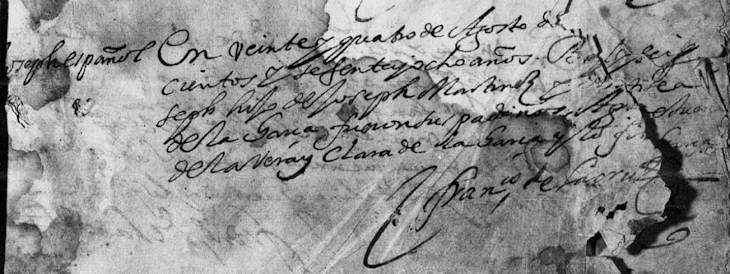 Joseph español
En veinte y quatro de Agosto de
cientos y sesenta y ocho años Baptise
seph hijo de Joseph Martinez y
de la Garça fueron sus padrinos
de la Vera y Clara de la Garça y lo firme
Fran.co de la Cruz